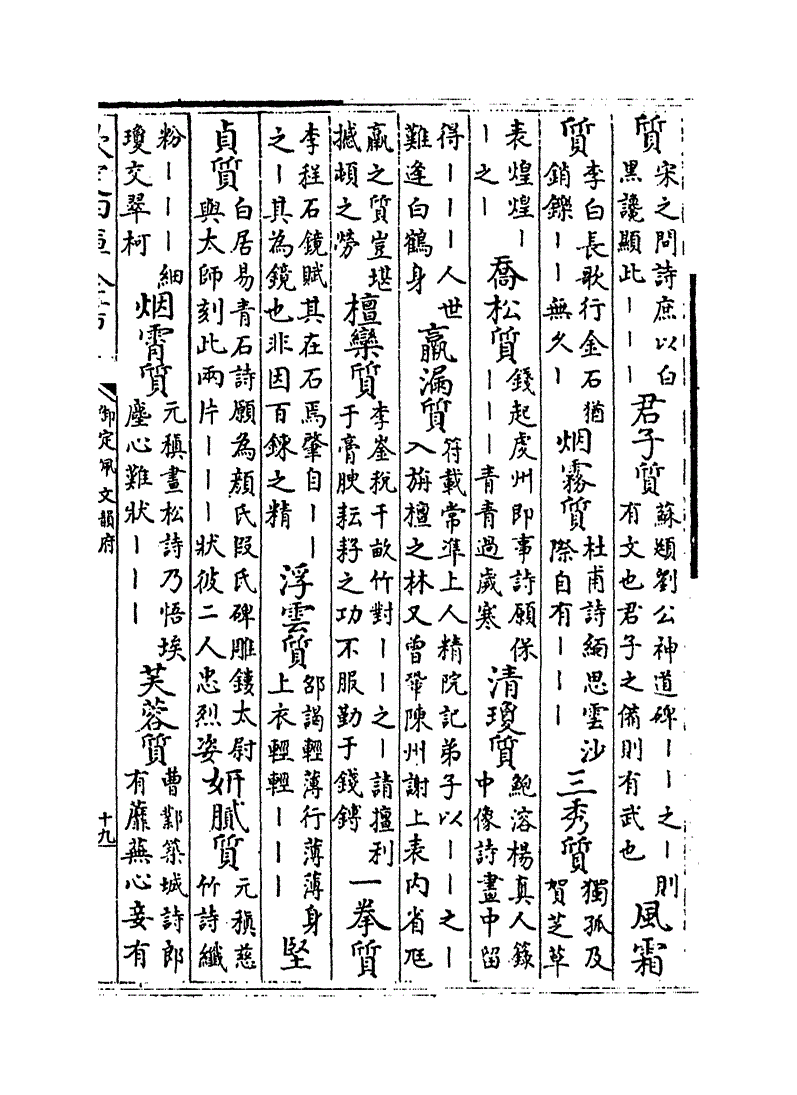 質宋之問詩庶以白黑讒顯此丨丨丨君子質蘇頲劉公神道碑丨丨之丨則有文也君子之備則有武也風霜
質李白長歌行金石猶銷鑠丨丨無久丨烟霧質杜甫詩緬思雲沙際自有丨丨丨三秀質獨孤及賀芝草
表煌煌丨丨之丨喬松質錢起虔州即事詩願保丨丨丨青青過歲寒清瓊質鮑溶楊真人籙中像詩畫中留
得丨丨丨人世難逢白鶴身羸漏質符載常準上人精院記弟子以丨丨之丨入旃檀之林又曾鞏陳州謝上表内省尫
羸之質豈堪撼頓之勞檀欒質李峑稅千畝竹對丨丨之丨請擅利于膏腴耘耔之功不服勤于錢鎛一拳質
李程石鏡賦其在石焉肇自丨丨之丨其為鏡也非因百鍊之精浮雲質邵謁輕薄行薄薄身上衣輕輕丨丨丨堅
貞質白居易青石詩願為顔氏段氏碑雕鏤太尉與太師刻此兩片丨丨丨狀彼二人忠烈姿妍膩質元稹慈竹詩纖
粉丨丨丨細瓊交翠柯烟霄質元稹畫松詩乃悟埃塵心難狀丨丨丨芙蓉質曹鄴築城詩郎有蘼蕪心妾有
御定佩文韻府
十九